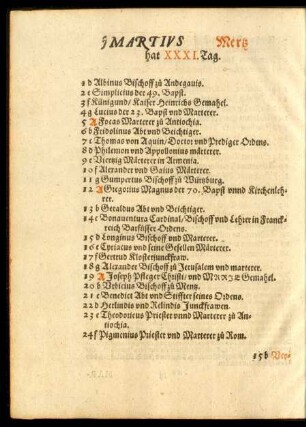 MARTIVS Mertz
hat XXXI. Tag.
1 d Albinus Bischoff zu Andegauis.
2 e Simplicius der 49. Bapst.
3 f Künigund / Kaiser Heinrichs Gemahel.
4 g Lucius der 23. Bapst vnd Marterer.
5 A Focas Marterer zu Antiochia.
6 b Fridolinus Abt vnd Beichtiger.
7 c Thomas von Aquin / Doctor vnd Prediger Ordens.
8 d Philemon vnd Appollonius märterer.
9 e Viertzig Märterer in Armenia.
10 f Alexander vnd Gaius Märterer.
11 g Gumpertus Bischoff zu Würtzburg.
12 A Gregorius Magnus der 70. Bapst vnnd Kirchenleh-
rer.
13 b Geraldus Abt vnd Beichtiger.
14 c Bonauentura Cardinal / Bischoff vnd Lehrer in Franck-
reich Barfüsser-Ordens.
15 d Longinus Bischoff vnd Marterer.
16 e Cyriacus vnd seine Gesellen Märterer.
17 f Gertrud Klosterjunckfraw.
18 g Alexander Bischoff zu Jerusalem vnd marterer.
19 A Joseph Pfleger Christi / vnd MARIAE Gemahel.
20 b Vrbicius Bischoff zu Metz.
21 c Benedict Abt vnd Stiffter seines Ordens.
22 d Herlindis vnd Relindis Junckfrawen.
23 e Theodoricus Priester vnnd Marterer zu An-
tiochia.
24 f Pigmenius Priester vnd Marterer zu Rom.